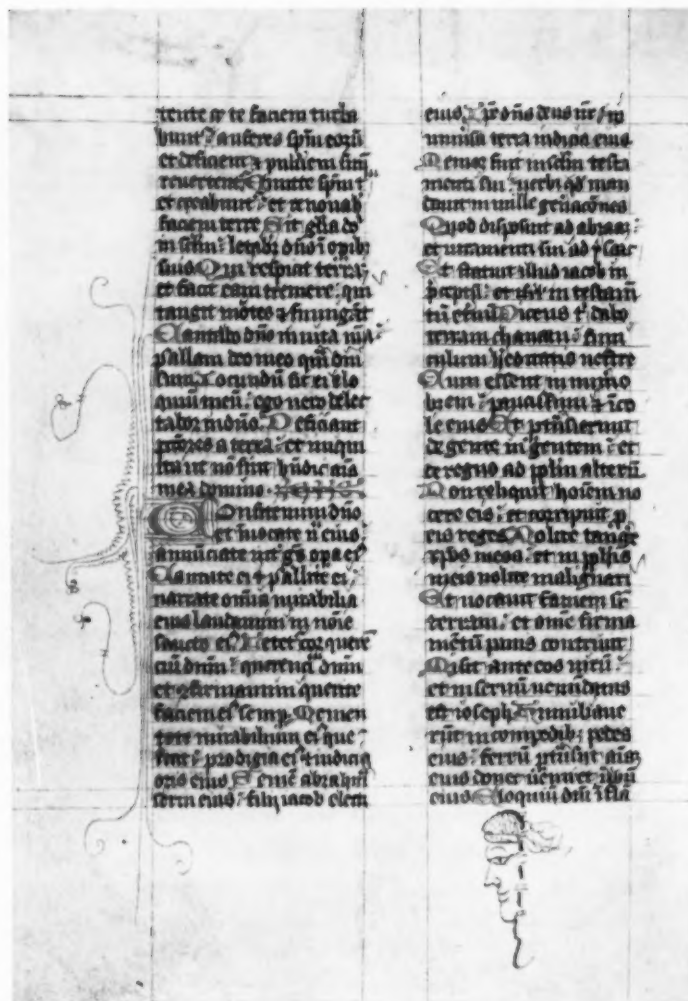 tente aũt te faciem turba
bunt⁊ auferes spm̃ eoꝝ
et deficient ⁊ in puluerem suũ
reuertentᷣ Emitte spm̃ tuũ
et creabunt᷑ et renouab
faciem terre Sit gl̃ia do
in sc̃lm̃ letabit᷑ dñs ĩ opib;
suis Qui respicit terrã
et facit eam tremere qui
tangit mõtes ⁊ fumigãt
Cantabo dño in uita mẽa
psallam deo meo qm̃ diu
sum Iocundũ sit ei elo
quiũ meũ ego uero delec
tabor in dño Deficiant
pctõres a terra et iniqui
ita ut nõ sint bñdic aĩa
mea domino
Confitemini dño
et inuocate nõ eius
annũciate int᷑ gẽs opa eiꝰ
Cantate ei ⁊ psallite ei
narrate omĩa mirabilia
eius laudamini in nõie
sancto eiꝰ Letet᷑ cor querẽ
ciũ dñm querite dñm
et ꝯfirmamini querite
faciem eiꝰ semp Memen
tote mirabilium eiꝰ que
fecit prodigia eiꝰ ⁊ iudicia
oris eius Semẽ abraham
serui eius filij iacob electi
eius Ipe dñs deus nr̃ in
uniuersa terra iudicia eius
Memor fuit in sc̃lm testa
menti sui uerbi qđ man
dauit in mille gñacõnes
Quod disposuit ad abraam
et iuramenti sui ad ysaac
Et statuit illud iacob in
pceptũ et isrl̃ in testam̃
tũ etñũ Dicens t᷑ dabo
terram chanaan funi
culum heditatis uestre
Cum essent in nũmo
breui paucissimi ⁊ ĩco
le eius Et ptñsierunt
de gente in gentem et
de regno ad pplm alterũ
Non reliquit hoĩem no
cere eis et corripuit p
eis reges Nolite tange
xpõs meos et in pphis
meis nolite malignari
Et uocauit famem sr̃
terram et omẽ firma
mẽtũ panis contriuit
Misit ante eos uirũ
in seruũ uenũdatus
est ioseph Humiliaue
rũt in compedib; pedes
eius ferrũ ptñsiit aĩam
eius donec ueniret ũbũ
eius Eloquiũ dñi ĩfla